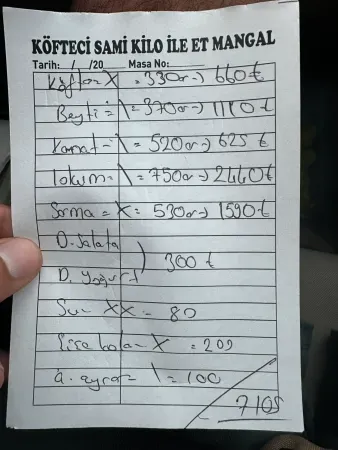 KÖFTECİ SAMİ KİLO İLE ET MANGAL
Tarih: / /20 Masa No:
Köfte X = 330gr → 660 ₺
Beyti = \ = 370gr → 1110 ₺
Kanat = \ = 520gr → 625 ₺
lokum = \ = 750gr → 2440 ₺
Sarma = X = 530gr → 1590 ₺
D. Salata
) 300 ₺
D. yoğurt
Su - XX - 80
Şişe kola - X = 200
A. ayran - \ = 100
7105